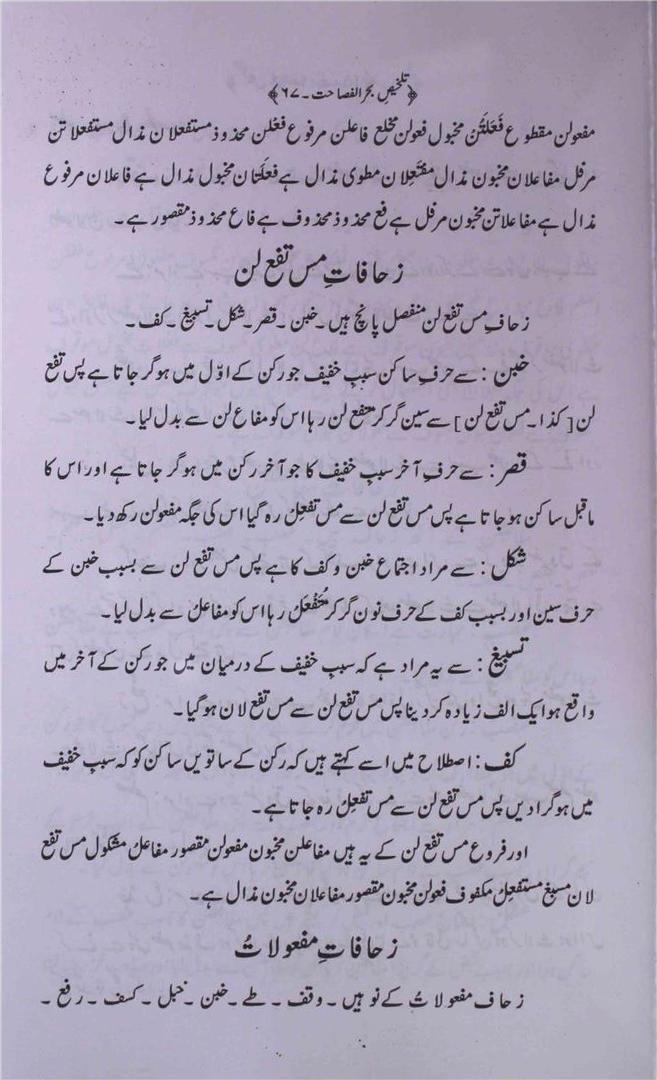 ﴿ تلخیصِ بحر الفصاحت۔۶۷ ﴾
مفعولن مقطوع فَعَلَتُن مخبول فعولن مخلع فاعلن مرفوع فعْلن محذوذ مستفعلان مذال مستفعلاتن
مرفل مفاعلان مخبون مذال مفتَعِلان مطوی مذال ہے فَعلَتان مخبول مذال ہے فاعلان مرفوع
مذال ہے مفاعلاتن مخبون مرفل ہے فع محذوذ محذوف ہے فاع محذوذ مقصور ہے۔
زحافاتِ مس تفع لن
زحافِ مس تفع لن منفصل پانچ ہیں۔خبن۔قصر۔شکل۔تسبیغ۔کف۔
خبن : سے حرفِ ساکن سببِ خفیف جو رکن کے اوّل میں ہو گر جاتا ہے پس تفع
لن [کذا۔مس تفع لن] سے سین گر کر متفع لن رہا اس کو مفاع لن سے بدل لیا۔
قصر : سے حرفِ آخر سببِ خفیف کا جو آخر رکن میں ہو گر جاتا ہے اور اس کا
ماقبل ساکن ہو جاتا ہے پس مس تفع لن سے مس تفعِل رہ گیا اس کی جگہ مفعولن رکھ دیا۔
شکل : سے مراد اجتماع خبن و کف کا ہے پس مس تفع لن سے بسبب خبن کے
حرف سین اور بسبب کف کے حرف نون گر کر مُتَفْعِلُ رہا اس کو مفاعلُ سے بدل لیا۔
تسبیغ : سے یہ مراد ہے کہ سببِ خفیف کے درمیان میں جو رکن کے آخر میں
واقع ہو ایک الف زیادہ کر دینا پس مس تفع لن سے مس تفع لان ہو گیا۔
کف : اصطلاح میں اسے کہتے ہیں کہ رکن کے ساتویں ساکن کو کہ سببِ خفیف
میں ہو گرا دیں پس مس تفع لن سے مس تفعِلُ رہ جاتا ہے۔
اور فروع مس تفع لن کے یہ ہیں مفاعلن مخبون مفعولن مقصور مفاعلُ مشکول مس تفع
لان مسبغ مستفعلُ مکفوف فعولن مخبون مقصور مفاعلان مخبون مذال ہے۔
زحافاتِ مفعولاتُ
زحاف مفعولاتُ کے نو ہیں ۔ وقف ۔ طے ۔ خبن ۔ خبل ۔ کسف ۔ رفع ۔